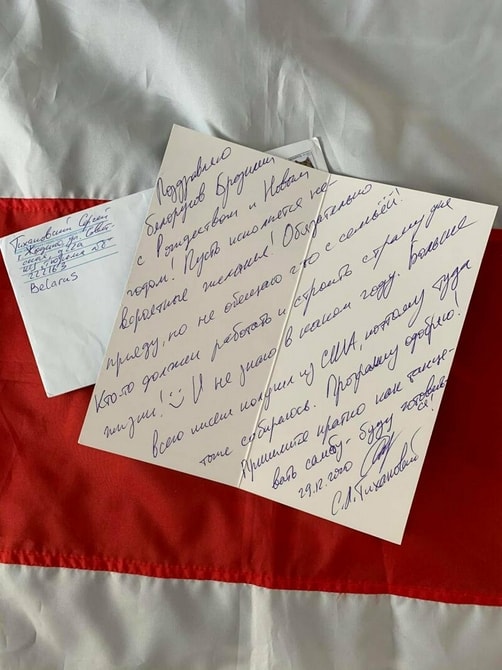 Тихановский Сергей
г. Жодино
222163
Belarus
Поздравляю
белорусов Бразилии
с Рождеством и Новым
годом! Пусть исполнятся не-
вероятные желания! Обязательно
приеду, но не обещаю что с семьёй!
Кто-то должен работать и строить страну для
жизни! И не знаю в каком году. Больше
всего писем получил из США, поэтому туда
тоже собираюсь. Программу одобряю!
Пришлите кратко как танце-
вать самбу - буду готовить-
ся!
29.12.2020
С.Л. Тихановский